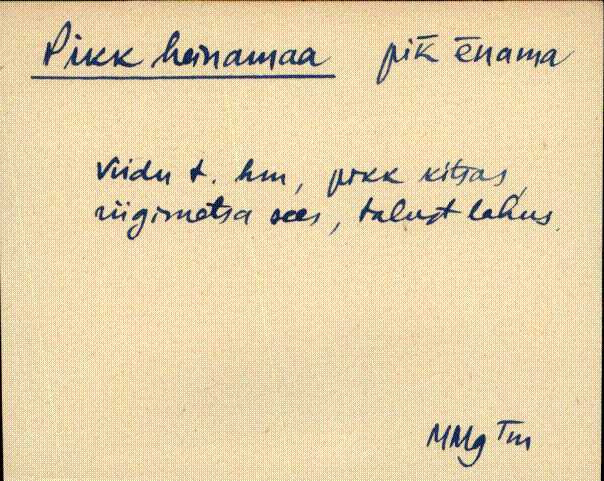 Pikk heinamaa pik̄ ēnama
Viidu t. hm, pikk kitsas,
riigimetsa sees, talust lahus.
MMg Tm